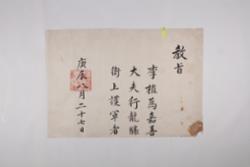 敎旨
李爲嘉善
大夫行龍驤
衛上護軍者
庚辰八月二十七日